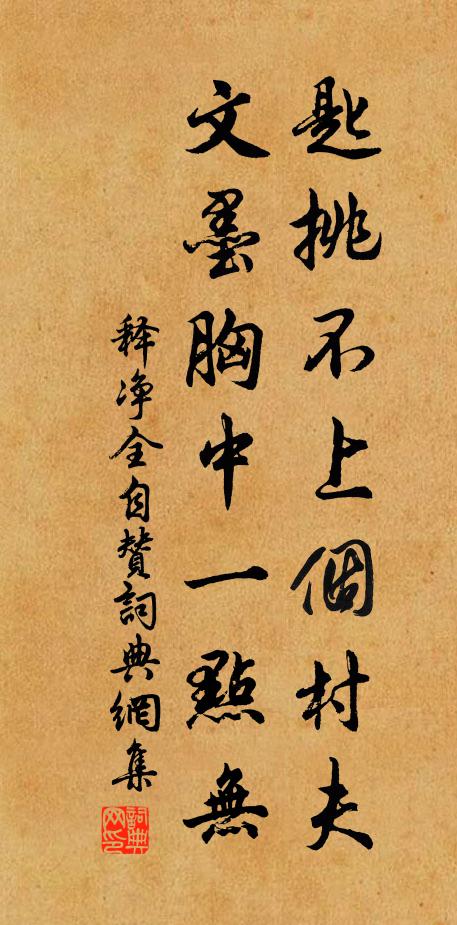 匙挑不上個村夫
文墨胸中一點無
释净全自贊詞典網集
詞典
网印